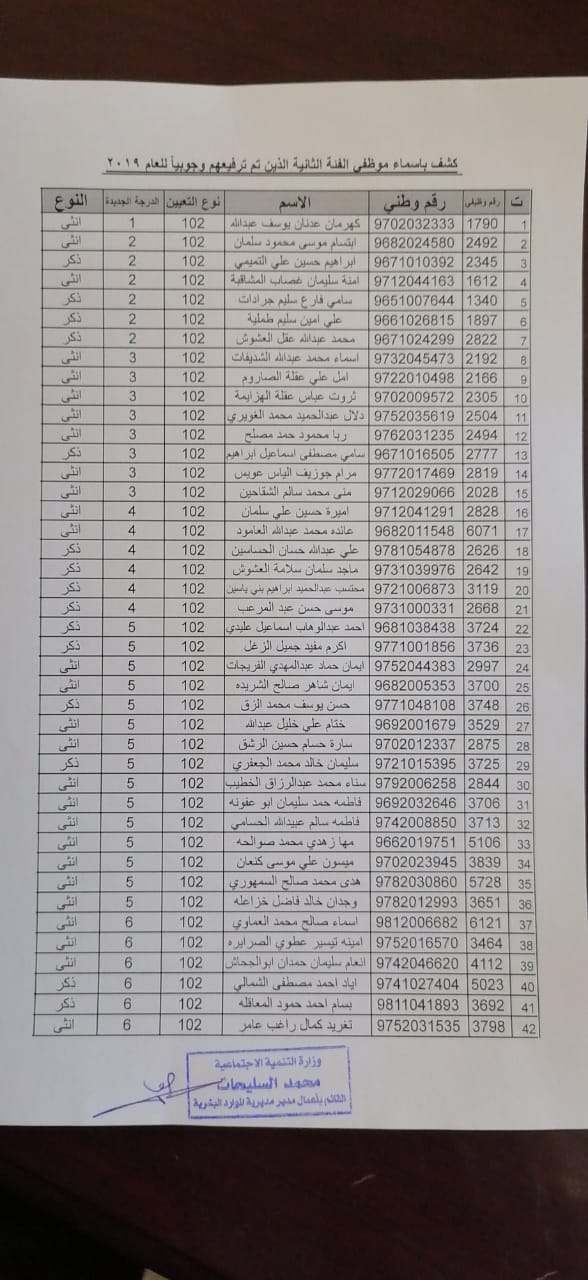 كشف باسماء موظفي الفئة الثانية الذين تم ترفيعهم وجوبياً للعام ٢٠١٩
ت رقم وظيفي رقم وطني الاسم نوع التعيين الدرجة الجديدة النوع
1 1790 9702032333 كهرمان عدنان يوسف عبدالله 102 1 انثى
2 2492 9682024580 ابتسام موسى محمود سلمان 102 2 انثى
3 2345 9671010392 ابراهيم حسين علي التميمي 102 2 ذكر
4 1612 9712044163 امنة سليمان غصاب المشاقبة 102 2 انثى
5 1340 9651007644 سامي فارع سليم جرادات 102 2 ذكر
6 1897 9661026815 علي امين سليم طملية 102 2 ذكر
7 2822 9671024299 محمد عبدالله عقل العشوش 102 2 ذكر
8 2192 9732045473 اسماء محمد عبدالله الشديفات 102 3 انثى
9 2166 9722010498 امل علي عقلة الصاروم 102 3 انثى
10 2305 9702009572 ثروت عباس عقلة الهزايمة 102 3 انثى
11 2504 9752035619 دلال عبدالحميد محمد الغويري 102 3 انثى
12 2494 9762031235 ربا محمود حمد مصلح 102 3 انثى
13 2777 9671016505 سامي مصطفى اسماعيل ابراهيم 102 3 ذكر
14 2819 9772017469 مرام جوزيف الياس عويس 102 3 انثى
15 2028 9712029066 منى محمد سالم الشقاحين 102 3 انثى
16 2828 9712041291 اميرة حسين علي سلمان 102 4 انثى
17 6071 9682011548 عائده محمد عبدالله العامود 102 4 انثى
18 2626 9781054878 علي عبدالله حسان الحساسين 102 4 ذكر
19 2642 9731039976 ماجد سلمان سلامة العشوش 102 4 ذكر
20 3119 9721006873 محتسب عبدالحميد ابراهيم بني ياسين 102 4 ذكر
21 2668 9731000331 موسى حسن عبد المرعب 102 4 ذكر
22 3724 9681038438 احمد عبدالوهاب اسماعيل عليدي 102 5 ذكر
23 3736 9771001856 اكرم مفيد جميل الزغل 102 5 ذكر
24 2997 9752044383 ايمان حماد عبدالمهدي الفريجات 102 5 انثى
25 3700 9682005353 ايمان شاهر صالح الشريده 102 5 انثى
26 3748 9771048108 حسن يوسف محمد الزق 102 5 ذكر
27 3529 9692001679 ختام علي خليل عبدالله 102 5 انثى
28 2875 9702012337 سارة حسام حسين الرشق 102 5 انثى
29 3725 9721015395 سليمان خالد محمد الجعفري 102 5 ذكر
30 2844 9792006258 سناء محمد عبدالرزاق الخطيب 102 5 انثى
31 3706 9692032646 فاطمه حمد سليمان ابو عفونه 102 5 انثى
32 3713 9742008850 فاطمه سالم عبيدالله الحسامي 102 5 انثى
33 5106 9662019751 مها زهدي محمد صوالحه 102 5 انثى
34 3839 9702023945 ميسون علي موسى كنعان 102 5 انثى
35 5728 9782030860 هدى محمد صالح السمهوري 102 5 انثى
36 3651 9782012993 وجدان خالد فاضل خزاعله 102 5 انثى
37 6121 9812006682 اسماء صالح محمد العماوي 102 6 انثى
38 3464 9752016570 امينه تيسير عطوي الصرايره 102 6 انثى
39 4112 9742046620 انعام سليمان حمدان ابوالجحاش 102 6 انثى
40 5023 9741027404 اياد احمد مصطفى الشمالي 102 6 ذكر
41 3692 9811041893 بسام احمد حمود المعاقله 102 6 ذكر
42 3798 9752031535 تغريد كمال راغب عامر 102 6 انثى
وزارة التنمية الاجتماعية
محمد السليحات
القائم بأعمال مدير مديرية الموارد البشرية